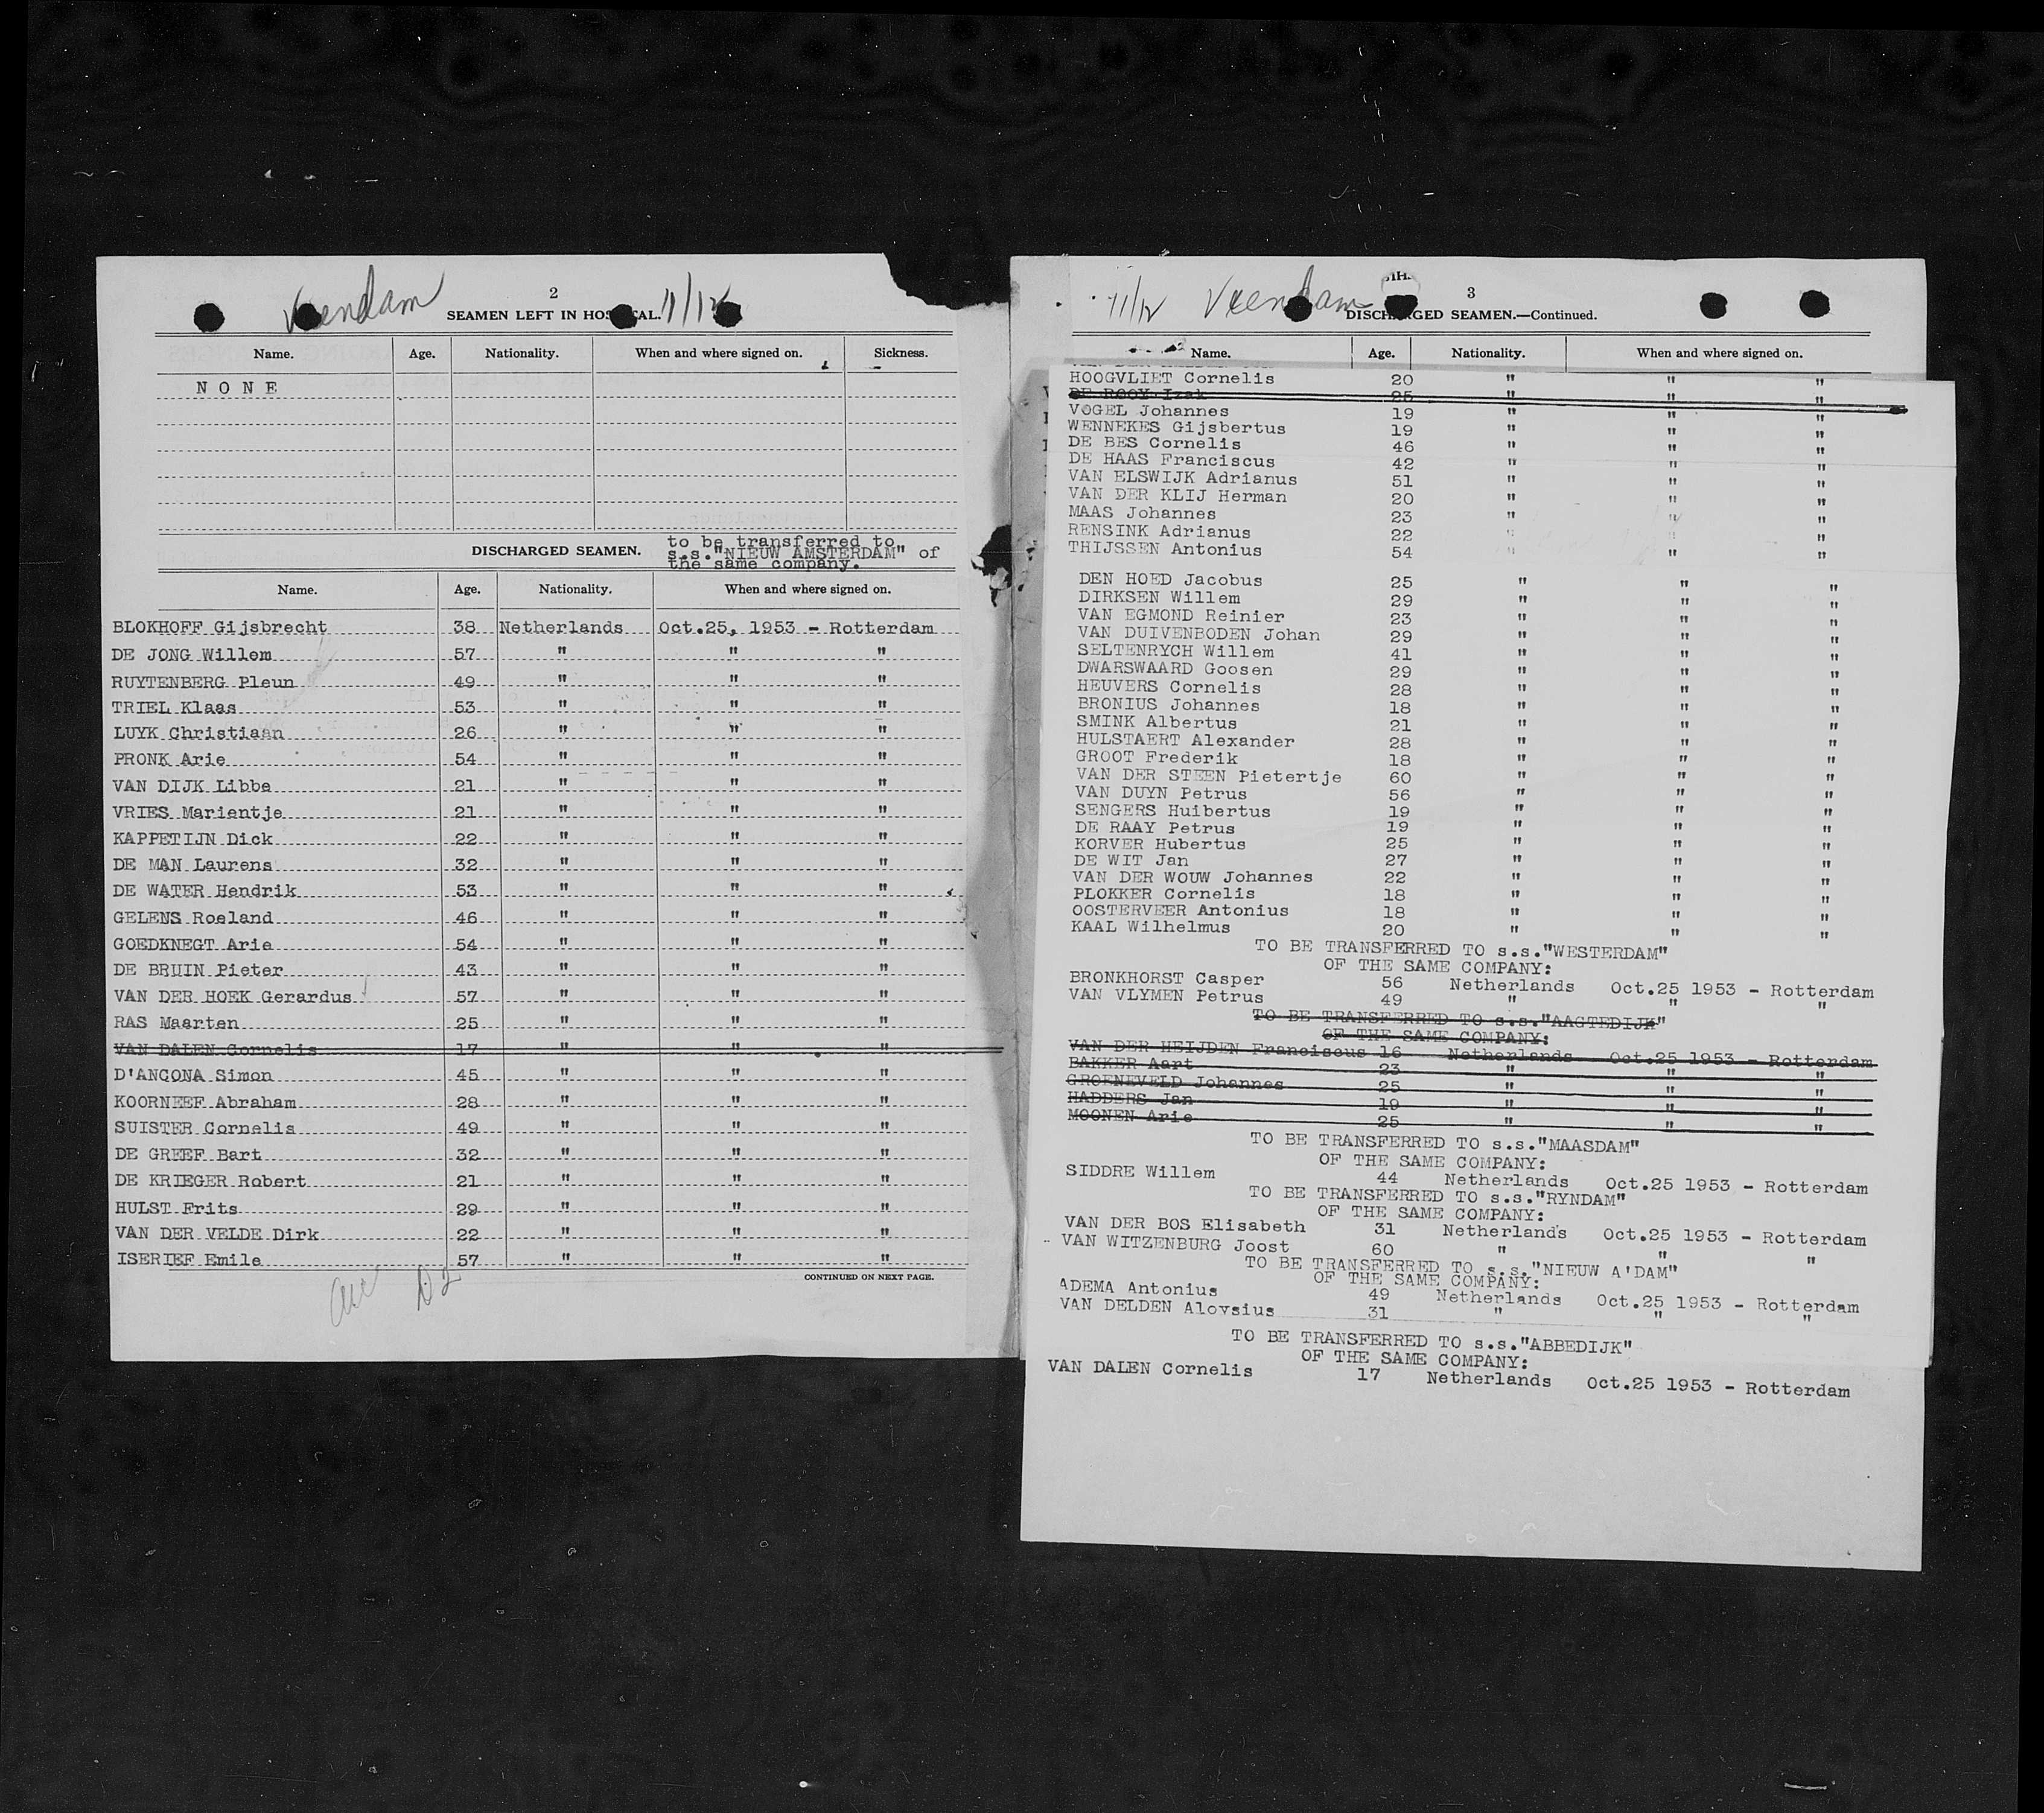 2
Veendam
SEAMEN LEFT IN HOSPITAL. 11/12
Name. Age. Nationality. When and where signed on. Sickness.
N O N E
DISCHARGED SEAMEN. to be transferred to
s.s."NIEUW AMSTERDAM" of
the same company.
Name. Age. Nationality. When and where signed on.
BLOKHOFF Gijsbrecht 38 Netherlands Oct.25, 1953 - Rotterdam
DE JONG Willem 57 " " "
RUYTENBERG Pleun 49 " " "
TRIEL Klaas 53 " " "
LUYK Christiaan 26 " " "
PRONK Arie 54 " " "
VAN DIJK Libbe 21 " " "
VRIES Marientje 21 " " "
KAPPETIJN Dick 22 " " "
DE MAN Laurens 32 " " "
DE WATER Hendrik 53 " " "
GELENS Roeland 46 " " "
GOEDKNEGT Arie 54 " " "
DE BRUIN Pieter 43 " " "
VAN DER HOEK Gerardus 57 " " "
RAS Maarten 25 " " "
VAN DALEN Cornelis 17 " " "
D'ANCONA Simon 45 " " "
KOORNEEF Abraham 28 " " "
SUISTER Cornelis 49 " " "
DE GREEF Bart 32 " " "
DE KRIEGER Robert 21 " " "
HULST Frits 29 " " "
VAN DER VELDE Dirk 22 " " "
ISERIEF Emile 57 " " "
CONTINUED ON NEXT PAGE.
D2
3
11/12 Veendam
DISCHARGED SEAMEN.—Continued.
Name. Age. Nationality. When and where signed on.
HOOGVLIET Cornelis 20 " " "
DE ROOY Izak 25 " " "
VOGEL Johannes 19 " " "
WENNEKES Gijsbertus 19 " " "
DE BES Cornelis 46 " " "
DE HAAS Franciscus 42 " " "
VAN ELSWIJK Adrianus 51 " " "
VAN DER KLIJ Herman 20 " " "
MAAS Johannes 23 " " "
RENSINK Adrianus 22 " " "
THIJSSEN Antonius 54 " " "
DEN HOED Jacobus 25 " " "
DIRKSEN Willem 29 " " "
VAN EGMOND Reinier 23 " " "
VAN DUIVENBODEN Johan 29 " " "
SELTENRYCH Willem 41 " " "
DWARSWAARD Goosen 29 " " "
HEUVERS Cornelis 28 " " "
BRONIUS Johannes 18 " " "
SMINK Albertus 21 " " "
HULSTAERT Alexander 28 " " "
GROOT Frederik 18 " " "
VAN DER STEEN Pietertje 60 " " "
VAN DUYN Petrus 56 " " "
SENGERS Huibertus 19 " " "
DE RAAY Petrus 19 " " "
KORVER Hubertus 25 " " "
DE WIT Jan 27 " " "
VAN DER WOUW Johannes 22 " " "
PLOKKER Cornelis 18 " " "
OOSTERVEER Antonius 18 " " "
KAAL Wilhelmus 20 " " "
TO BE TRANSFERRED TO s.s."WESTERDAM"
OF THE SAME COMPANY:
BRONKHORST Casper 56 Netherlands Oct.25 1953 - Rotterdam
VAN VLYMEN Petrus 49 " " "
TO BE TRANSFERRED TO s.s."AAGTEDIJK"
OF THE SAME COMPANY:
VAN DER HEIJDEN Franciscus 16 Netherlands Oct.25 1953 - Rotterdam
BAKKER Aart 23 " " "
GROENEVELD Johannes 25 " " "
HADDERS Jan 19 " " "
MOONEN Arie 25 " " "
TO BE TRANSFERRED TO s.s."MAASDAM"
OF THE SAME COMPANY:
SIDDRE Willem 44 Netherlands Oct.25 1953 - Rotterdam
TO BE TRANSFERRED TO s.s."RYNDAM"
OF THE SAME COMPANY:
VAN DER BOS Elisabeth 31 Netherlands Oct.25 1953 - Rotterdam
VAN WITZENBURG Joost 60 " " "
TO BE TRANSFERRED TO s.s."NIEUW A'DAM"
OF THE SAME COMPANY:
ADEMA Antonius 49 Netherlands Oct.25 1953 - Rotterdam
VAN DELDEN Aloysius 31 " " "
TO BE TRANSFERRED TO s.s."ABBEDIJK"
OF THE SAME COMPANY:
VAN DALEN Cornelis 17 Netherlands Oct.25 1953 - Rotterdam